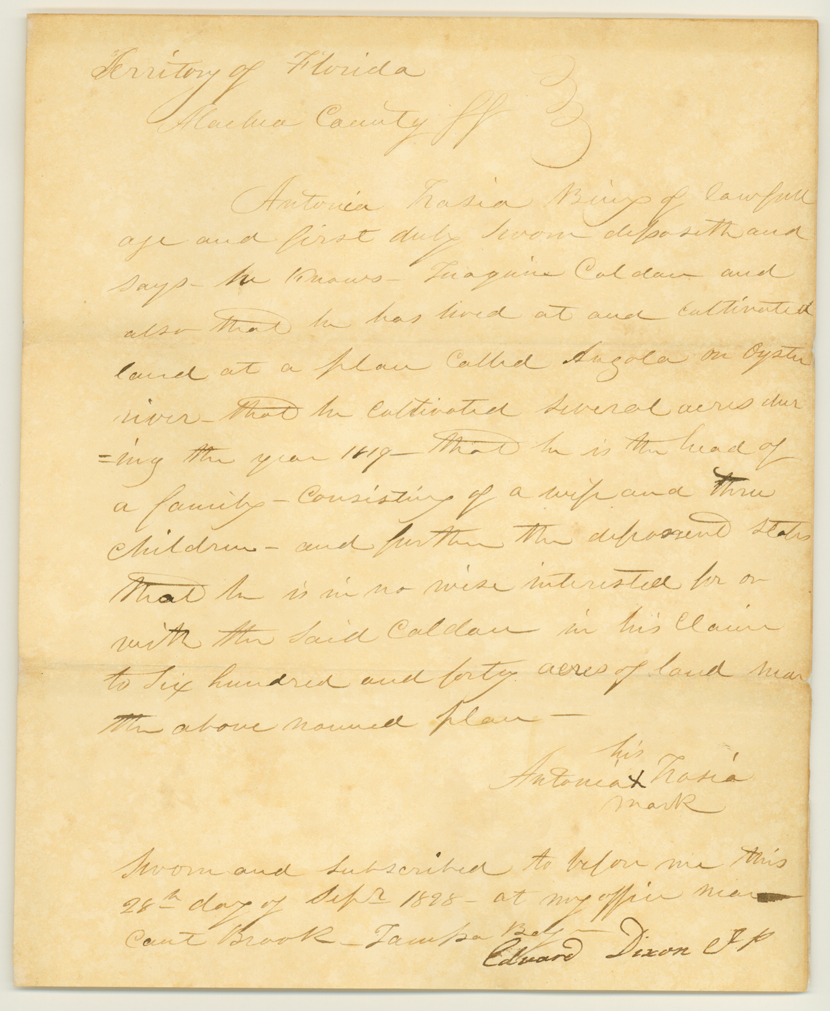 Territory of Florida
Alachua County ss
Antonia Trasia Being of lawfull
age and first duly sworn deposeth and
says - he knows - Juaquin Caldau and
also that he has lived at and cultivated
land at a place called Angola on Oyster
river - that he cultivated several acres dur
=ing the year 1819 - that he is the head of
a family - consisting of a wife and three
children - and further the deponent states
that he is in no wise interested for or
with the said Caldau in his claim
to six hundred and forty acres of land near
the above named place -
his
Antonia X Trasia
mark
Sworn and subscribed to before me this
28th day of Sepr 1828 - at my office near
Cant Brook - Tampa Bay -
Edward Dixon JP